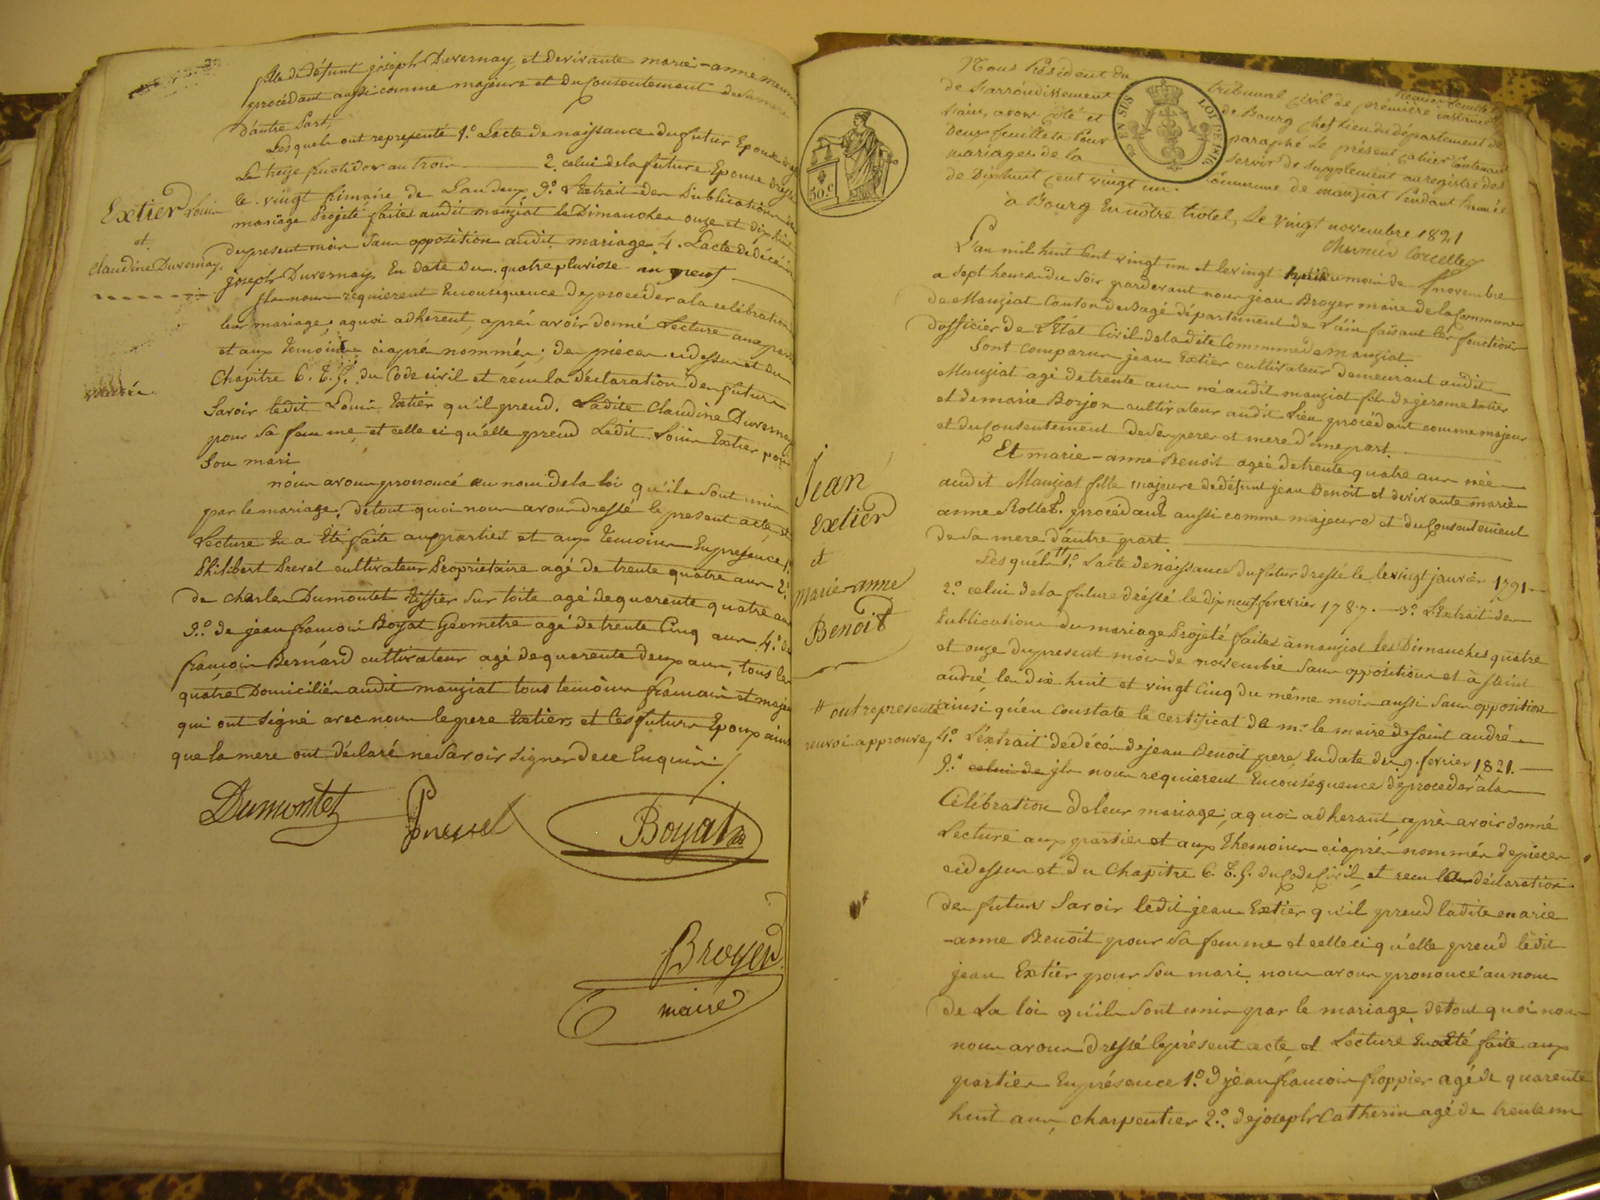 fille de défunt joseph Duvernay et de vivante marie-anne
procédant aussi comme majeure et du consentement de sa mere
d'autre part
Lesquels ont representé 1.° L'acte de naissance du futur Epoux
Le treize fructidor an trois 2.° celui de la future Epouse
le vingt frimaire de L'an deux 3.° L'Extrait des Publications
mariage Projeté faites audit manziat les Dimanches onze et dix huit
du present mois sans opposition audit mariage 4.° L'acte de décès
joseph Duvernay En date du quatre pluviose an neuf
Ils nous requierent En consequence de proceder a la celebration
leur mariage, aquoi adherent, après avoir donné Lecture aux parties
et aux temoins ciaprès nommés, des pièces ci dessus et du
Chapitre 6. T. 5. du Code civil et recu la déclaration des futurs
Savoir ledit Louis Extier qu'il prend Ladite Claudine Duvernay
pour sa femme et celle ci qu'elle prend Ledit Louis Extier pour
Son mari
nous avons prononcé au nom de la loi qu'ils sont unis
par le mariage, de tout quoi nous avons dressé le present acte, et
Lecture En a Eté faite aux parties et aux temoins En presence 1.°
Philibert Prevel cultivateur Proprietaire agé de trente quatre ans 2.°
de charles Dumontet Tissier sur toile agé de quarente quatre ans
3.° de jean françois Boyat Geometre agé de trente Cinq ans 4.° de
françois Bernard cultivateur agé de quarente deux ans, tous les
quatre Domiciliés audit manziat tous temoins francais et majeurs
qui ont signé avec nous le pere Extier et les futurs Epoux ainsi
que la mere ont déclaré ne Savoir signer de ce Enquis
Extier Louis
et
Claudine Duvernay
Dumontet
Boyat
Broyer
maire
Nous Président du tribunal civil de première instance
de L'arrondissement de Bourg chef lieu du département de
L'ain, avons coté et paraphé Le présent cahier Contenant
Deux feuillets Pour servir de Supplement au registre des
mariages de la Commune de manziat Pendant l'année
de Dix huit cent vingt un.
à Bourg En notre hotel, Le vingt novembre 1821
EN SUS
LOI DE 1816
50.c
L'an mil huit Cent vingt un et le vingt huit du mois de novembre
a sept heures du Soir pardevant nous jean Broyer maire de la Commune
de Manziat Canton de Bagé département de L'ain faisant les fonctions
d'officier de L'Etat Civil de la dite Commune de manziat
Sont comparus jean Extier cultivateur demeurant audit
Manziat agé de trente ans né audit manziat fils de jerome Extier
et de marie Borjon cultivateur audit Lieu procédant comme majeur
et du consentement de Ses pere et mere d'une part
Et marie-anne Benoit agée de trente quatre ans née
audit Manziat fille majeure de défunt jean Benoit et de vivante marie
anne Rollet procédant aussi comme majeure et du consentement
de Sa mere d'autre part
Lesquels # 1.° L'acte de naissance du futur dressé le vingt janvier 1791
2.° celui de la future dressé le dix neuf fevrier 1787. 3.° L'Extrait des
Publications du mariage Projeté faites a manziat Les Dimanches quatre
et onze du present mois de novembre Sans opposition et a Saint
andré les dix huit et vingt Cinq du même mois aussi Sans opposition
ainsi qu'en constate le certificat de mr le maire de Saint andré
4.° L'extrait de décés de jean Benoit pere En date du 9. fevrier 1821.
5.° celui de ils nous requierent En conséquence de proceder a la
Célébration de leur mariage, a quoi adherant, après avoir donné
Lecture aux parties et aux Themoins ciaprès nommés de pièces
ci dessus et du Chapitre 6. T. 5. du Code Civil, et recu la déclaration
des futurs Savoir ledit jean Extier qu'il prend ladite marie
-anne Benoit pour Sa femme et celle ci qu'elle prend ledit
jean Extier pour Son mari nous avons prononcé au nom
de La loi qu'ils Sont unis par le mariage, de tout quoi nous
nous avons dressé le présent acte et Lecture En a été faite aux
parties En présence 1.° d jean francois froppier agé de quarente
huit ans, charpentier 2.° de joseph Catherin agé de trente un
Jean
Extier
et
marie-anne
Benoit
# ont representé
renvoi approuvé